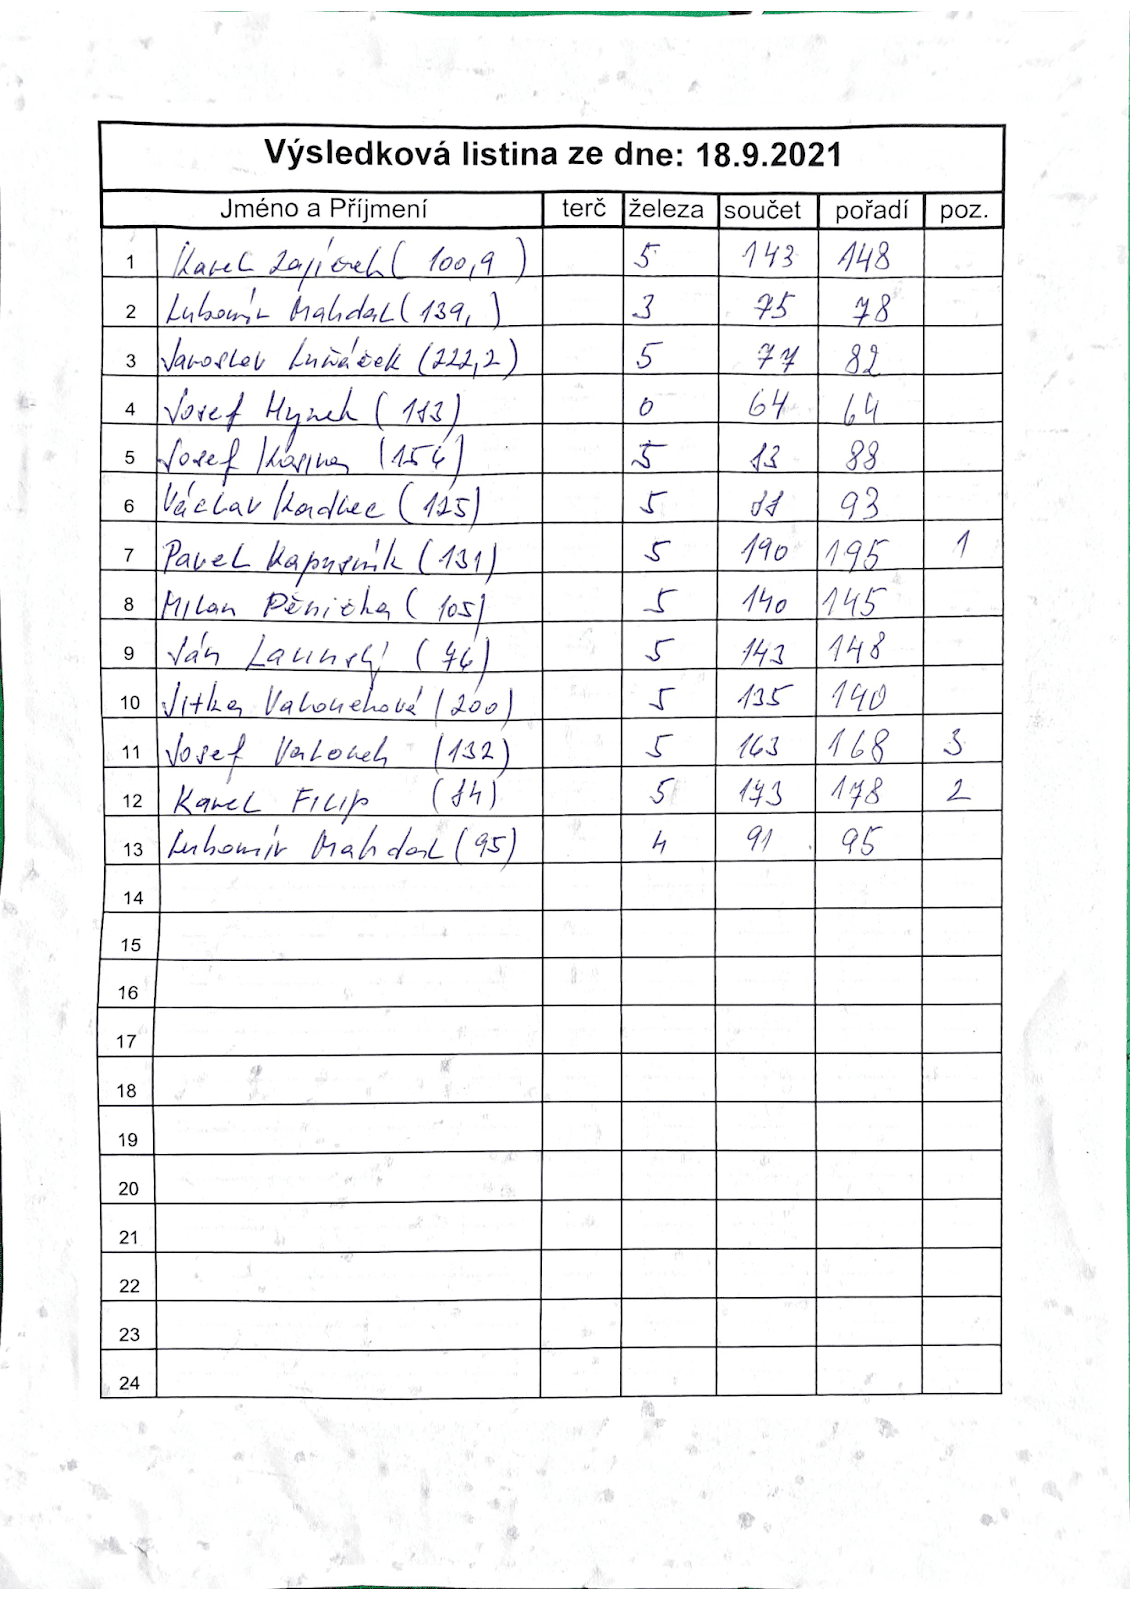 Výsledková listina ze dne: 18.9.2021
Jméno a Příjmení terč železa součet pořadí poz.
1 Karel Zajíček (100,9) 5 143 148
2 Lubomír Mahdal (139,) 3 75 78
3 Jaroslav Luňáček (222,2) 5 77 82
4 Josef Hynek (183) 0 64 64
5 Josef (154) 5 83 88
6 Václav Kadlec (125) 5 88 93
7 Pavel Kapusník (131) 5 190 195 1
8 Milan Pěnička (105) 5 140 145
9 Ján (76) 5 143 148
10 Jitka Valouchová (200) 5 135 140
11 Josef Valouch (132) 5 163 168 3
12 Karel Filip (84) 5 173 178 2
13 Lubomír Mahdal (95) 4 91 95
14
15
16
17
18
19
20
21
22
23
24